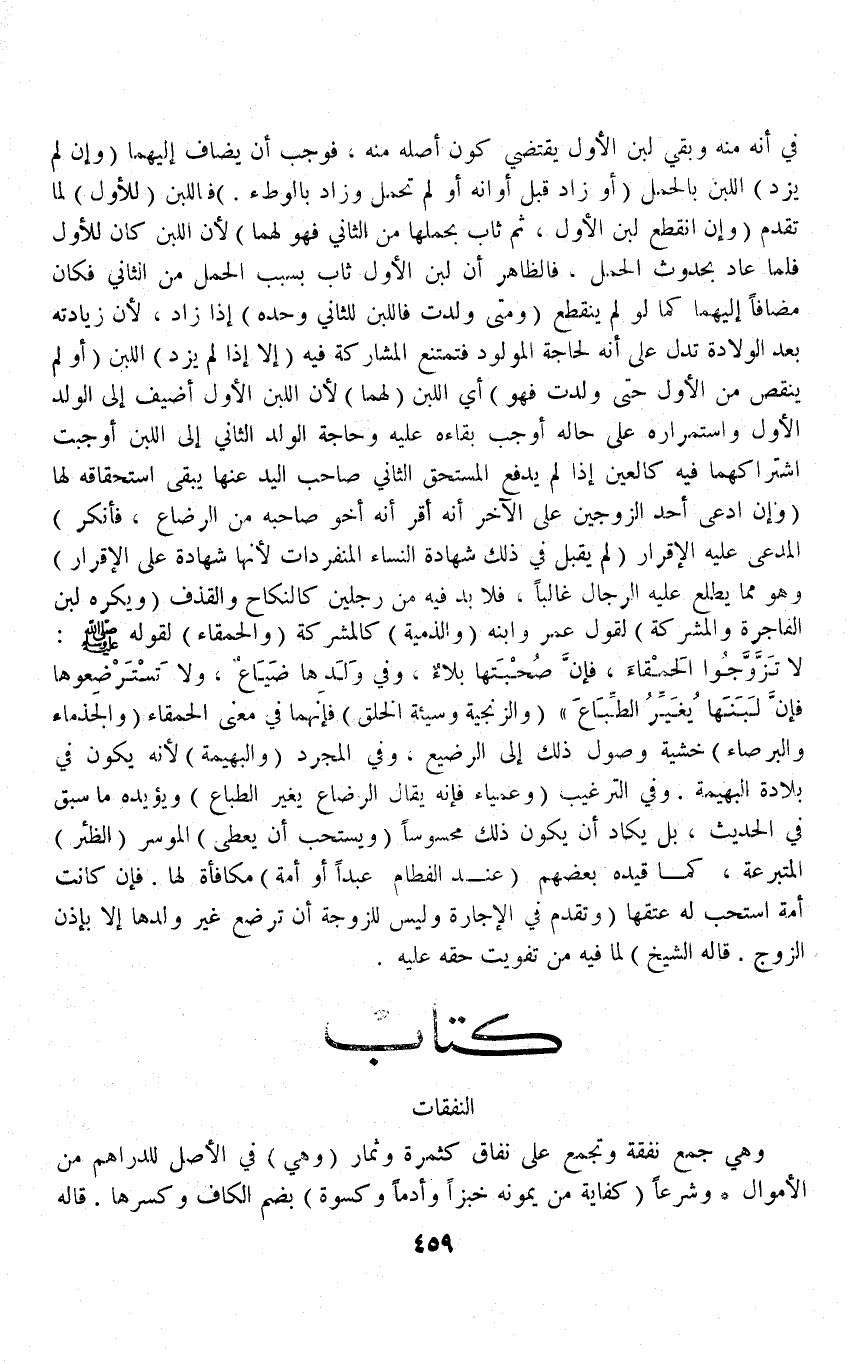 في أنه منه وبقي لبن الأول يقتضي كون أصله منه ، فوجب أن يضاف إليهما ( وإن لم
يزد ) اللبن بالحمل ( أو زاد قبل أوانه أو لم تحمل وزاد بالوطء . )فاللبن ( للأول ) لما
تقدم ( وإن انقطع لبن الأول ، ثم ثاب بحملها من الثاني فهو لهما ) لأن اللبن كان للأول
فلما عاد بحدوث الحمل ، فالظاهر أن لبن الأول ثاب بسبب الحمل من الثاني فكان
مضافاً إليهما كما لو لم ينقطع ( ومتى ولدت فاللبن للثاني وحده ) إذا زاد ، لأن زيادته
بعد الولادة تدل على أنه لحاجة المولود فتمتنع المشاركة فيه ( إلا إذا لم يزد ) اللبن ( أو لم
ينقص من الأول حتى ولدت فهو ) أي اللبن ( لهما ) لأن اللبن الأول أضيف إلى الولد
الأول واستمراره على حاله أوجب بقاءه عليه وحاجة الولد الثاني إلى اللبن أوجبت
اشتراكهما فيه كالعين إذا لم يدفع المستحق الثاني صاحب اليد عنها يبقى استحقاقه لها
( وإن ادعى أحد الزوجين على الآخر أنه أقر أنه أخو صاحبه من الرضاع ، فأنكر )
المدعى عليه الإقرار ( لم يقبل في ذلك شهادة النساء المنفردات لأنها شهادة على الإقرار )
وهو مما يطلع عليه الرجال غالباً ، فلا بد فيه من رجلين كالنكاح والقذف ( ويكره لبن
الفاجرة والمشركة ) لقول عمر وابنه ( والذمية ) كالمشركة ( والحمقاء ) لقوله ﷺ :
لا تَزَّوَّجُوا الحَمْقاءَ ، فإنَّ صُحْبَتَها بلاءٌ ، وفي وَلَدِها ضَيَاعٌ ، ولا تَسْتَرْضِعوها
فإنَّ لَبَنَها يُغَيِّرُ الطِّبَاعَ » ( والزنجية وسيئة الخلق ) فإنهما في معنى الحمقاء ( والجذماء
والبرصاء ) خشية وصول ذلك إلى الرضيع ، وفي المجرد ( والبهيمة ) لأنه يكون في
بلادة البهيمة . وفي الترغيب ( وعمياء فإنه يقال الرضاع يغير الطباع ) ويؤيده ما سبق
في الحديث ، بل يكاد أن يكون ذلك محسوساً ( ويستحب أن يعطى ) الموسر ( الظئر )
المتبرعة ، كما قيده بعضهم ( عند الفطام عبداً أو أمة ) مكافأة لها . فإن كانت
أمة استحب له عتقها ( وتقدم في الإجارة وليس للزوجة أن ترضع غير ولدها إلا بإذن
الزوج . قاله الشيخ ) لما فيه من تفويت حقه عليه .
كتاب
النفقات
وهي جمع نفقة وتجمع على نفاق كثمرة وثمار ( وهي ) في الأصل للدراهم من
الأموال * وشرعاً ( كفاية من يمونه خبزاً وأدماً وكسوة ) بضم الكاف وكسرها . قاله
٤٥٩